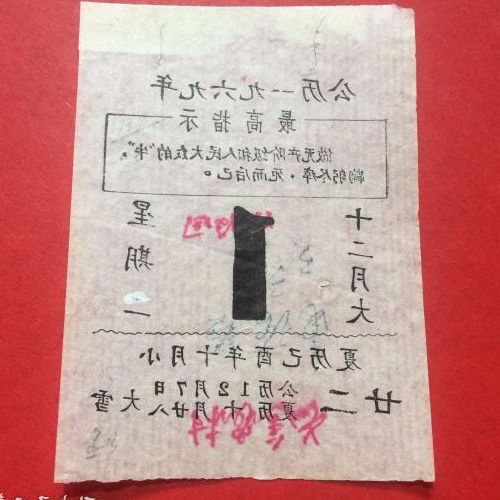 公历一九六九年
最高指示
做无产阶级和人民大众的“牛”，
鞠躬尽瘁，死而后已。
十二月大
1
星期一
夏历己酉年十月小
廿二
公历12月7日
夏历十月廿八
大雪